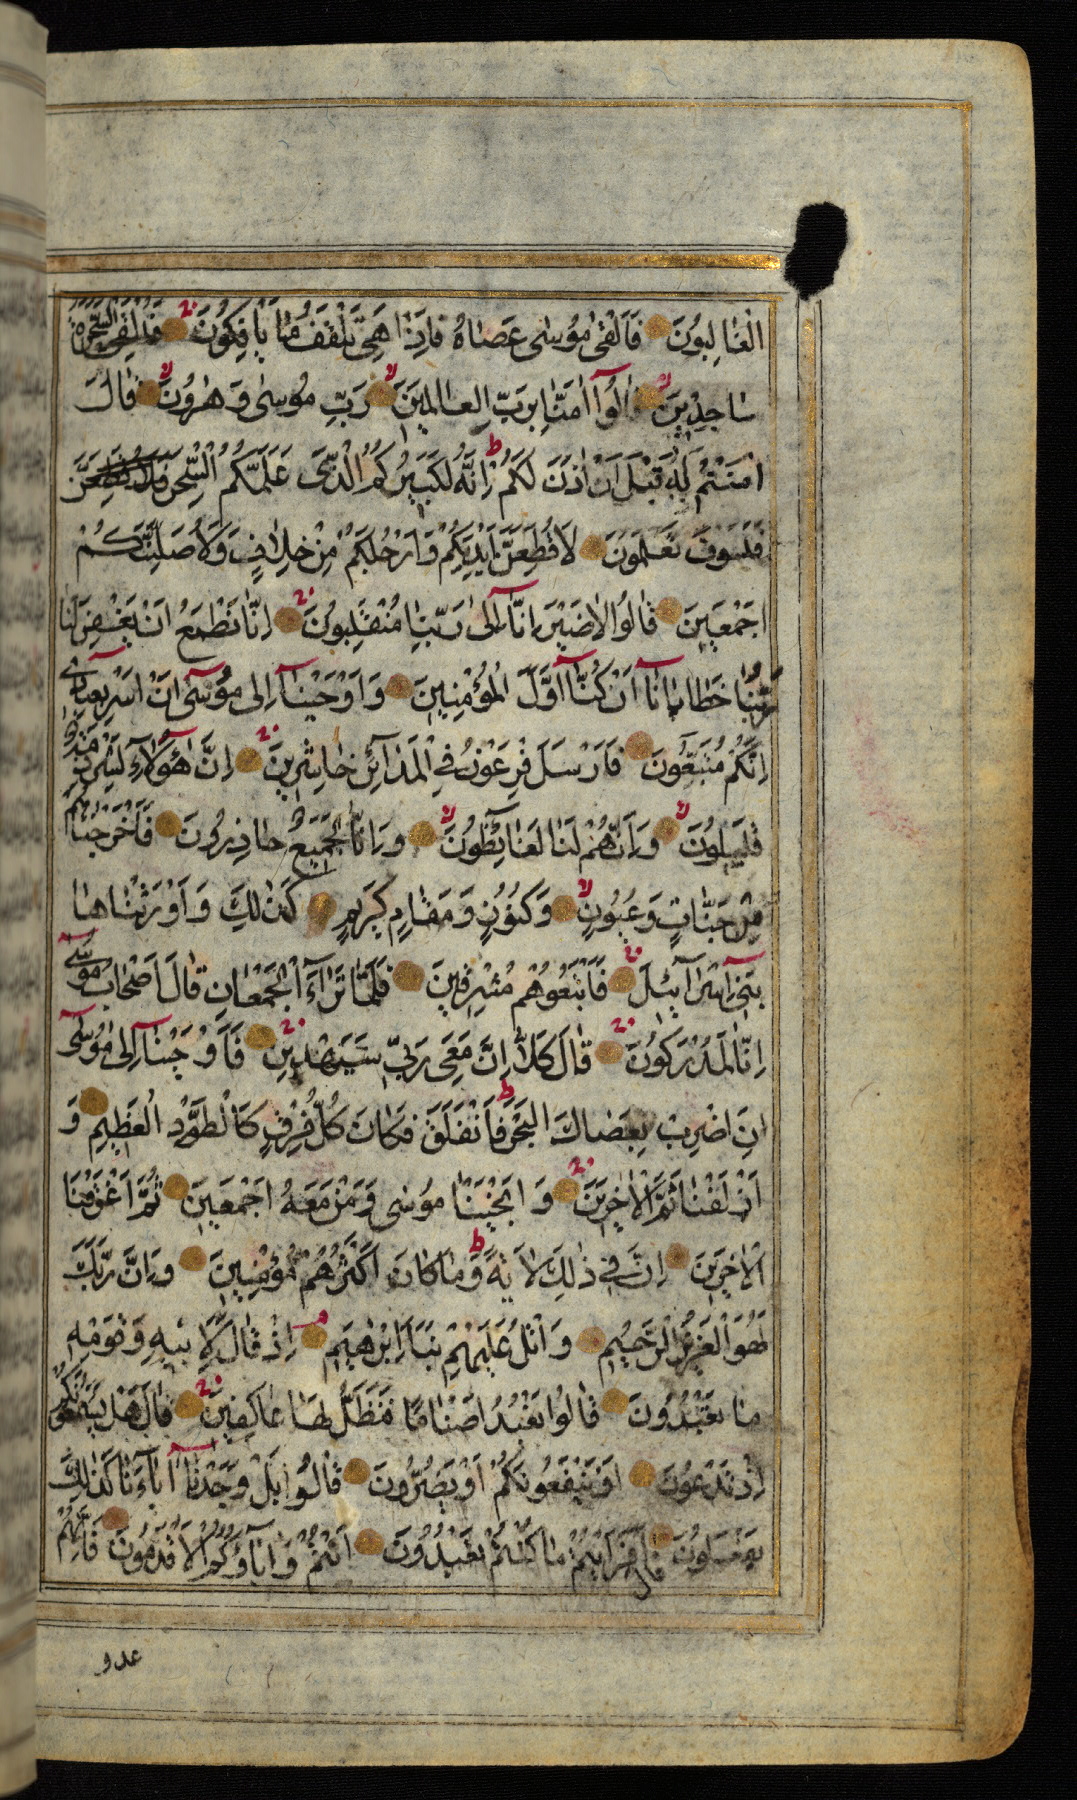 الْغَالِبُونَ فَاَلْقٰى مُوسٰى عَصَاهُ فَاِذَا هِىَ تَلْقَفُ مَا يَاْفِكُونَ فَاُلْقِىَ السَّحَرَةُ
سَاجِدِينَ قَالُوا اٰمَنَّا بِرَبِّ الْعَالَمِينَ رَبِّ مُوسٰى وَهٰرُونَ قَالَ
اٰمَنْتُمْ لَهُ قَبْلَ اَنْ اٰذَنَ لَكُمْ اِنَّهُ لَكَبِيرُكُمُ الَّذِى عَلَّمَكُمُ السِّحْرَ
فَلَسَوْفَ تَعْلَمُونَ لَاُقَطِّعَنَّ اَيْدِيَكُمْ وَاَرْجُلَكُمْ مِنْ خِلَافٍ وَلَاُصَلِّبَنَّكُمْ
اَجْمَعِينَ قَالُوا لَا ضَيْرَ اِنَّا اِلٰى رَبِّنَا مُنْقَلِبُونَ اِنَّا نَطْمَعُ اَنْ يَغْفِرَ لَنَا
رَبُّنَا خَطَايَانَا اَنْ كُنَّا اَوَّلَ الْمُؤْمِنِينَ وَاَوْحَيْنَا اِلٰى مُوسٰى اَنْ اَسْرِ بِعِبَادِى
اِنَّكُمْ مُتَّبَعُونَ فَاَرْسَلَ فِرْعَوْنُ فِى الْمَدَائِنِ حَاشِرِينَ اِنَّ هٰؤُلَاءِ لَشِرْذِمَةٌ
قَلِيلُونَ وَاِنَّهُمْ لَنَا لَغَائِظُونَ وَاِنَّا لَجَمِيعٌ حَاذِرُونَ فَاَخْرَجْنَاهُمْ
مِنْ جَنَّاتٍ وَعُيُونٍ وَكُنُوزٍ وَمَقَامٍ كَرِيمٍ كَذٰلِكَ وَاَوْرَثْنَاهَا
بَنِى اِسْرَائِيلَ فَاَتْبَعُوهُمْ مُشْرِقِينَ فَلَمَّا تَرَاءَ الْجَمْعَانِ قَالَ اَصْحَابُ مُوسٰى
اِنَّا لَمُدْرَكُونَ قَالَ كَلَّا اِنَّ مَعِىَ رَبِّى سَيَهْدِينِ فَاَوْحَيْنَا اِلٰى مُوسٰى
اَنِ اضْرِبْ بِعَصَاكَ الْبَحْرَ فَانْفَلَقَ فَكَانَ كُلُّ فِرْقٍ كَالطَّوْدِ الْعَظِيمِ وَ
اَزْلَفْنَا ثَمَّ الْاٰخَرِينَ وَاَنْجَيْنَا مُوسٰى وَمَنْ مَعَهُ اَجْمَعِينَ ثُمَّ اَغْرَقْنَا
الْاٰخَرِينَ اِنَّ فِى ذٰلِكَ لَاٰيَةً وَمَا كَانَ اَكْثَرُهُمْ مُؤْمِنِينَ وَاِنَّ رَبَّكَ
لَهُوَ الْعَزِيزُ الرَّحِيمُ وَاتْلُ عَلَيْهِمْ نَبَاَ اِبْرٰهِيمَ اِذْ قَالَ لِاَبِيهِ وَقَوْمِهِ
مَا تَعْبُدُونَ قَالُوا نَعْبُدُ اَصْنَامًا فَنَظَلُّ لَهَا عَاكِفِينَ قَالَ هَلْ يَسْمَعُونَكُمْ
اِذْ تَدْعُونَ اَوْ يَنْفَعُونَكُمْ اَوْ يَضُرُّونَ قَالُوا بَلْ وَجَدْنَا اٰبَاءَنَا كَذٰلِكَ
يَفْعَلُونَ قَالَ اَفَرَاَيْتُمْ مَا كُنْتُمْ تَعْبُدُونَ اَنْتُمْ وَاٰبَاؤُكُمُ الْاَقْدَمُونَ فَاِنَّهُمْ
عدو